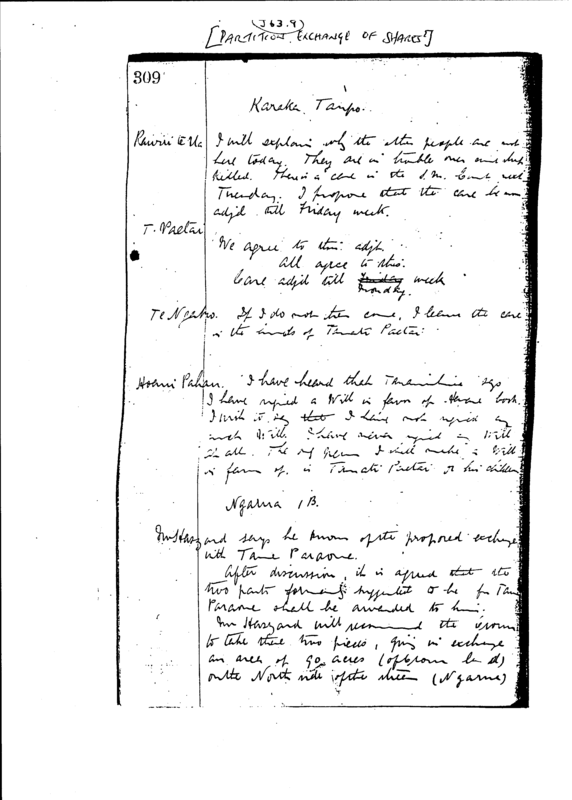 (J63.9)
[PARTITION. EXCHANGE OF SHARES?]
309
Kareka Taupo.
I will explain why the other people are not
here today. They are in trouble over
killed. There is a case in the S.M. Court next
Tuesday. I propose that the case be
adjd till Friday week.
T. Paetai
We agree to this adjt.
All agree to this.
Case adjd till Friday week
Monday.
If I do not then come, I leave the case
in the hands of Tamati Paetai
I have heard that says
I have signed a Will in favor of
I wish to say that I have not signed any
such Will. I have never signed a Will
at all. The I will make a Will
in favor of is Tamati Paetai or his children
Ngarua 1B.
Mr Haszard says he knows of the proposed exchange
with Tame Paraone.
After discussion, it is agreed that the
two parts formerly suggested to be for Tame
Paraone shall be awarded to him.
Mr Haszard will recommend the Crown
to take these two pieces, giving in exchange
an area of 90 acres (of Crown land)
on the North side of the (Ngarua)